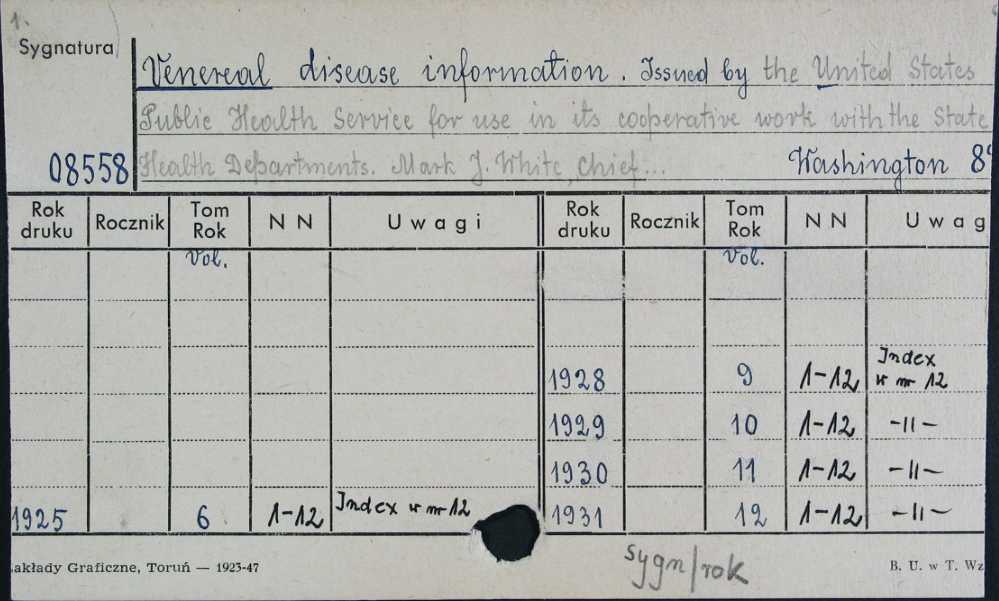 1.
Sygnatura
Venereal disease information. Issued by the United States
Public Health Service for use in its cooperative work with the State
08558 Health Departments. Mark J. White, Chief... Washington 8°
Rok druku Rocznik Tom Rok N N Uwagi Rok druku Rocznik Tom Rok N N Uwag
Vol. Vol.
1928 9 1-12 Index w nr 12
1929 10 1-12 -11-
1930 11 1-12 -11-
1925 6 1-12 Index w nr 12 1931 12 1-12 -11-
sygn/rok
akłady Graficzne, Toruń — 1923-47 B. U. w T. Wz